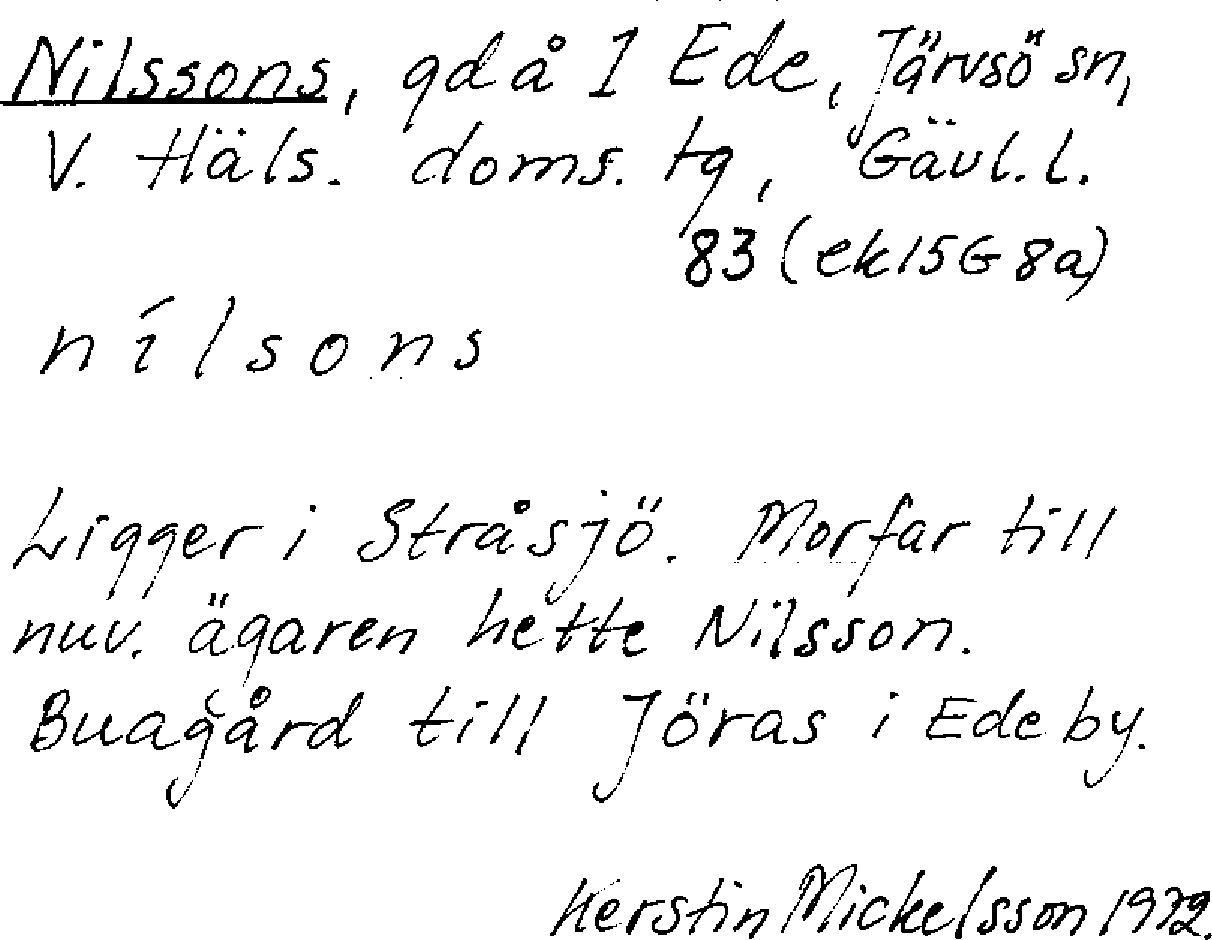 Nilssons, gd å 1 Ede, Järvsö sn,
V. Häls. doms. tg, Gävl. l.
83 (ek 15G 8a)
nílsons
Ligger i Stråsjö. Morfar till
nuv. ägaren hette Nilsson.
Buagård till Jöras i Ede by.
Kerstin Mickelsson 1972.